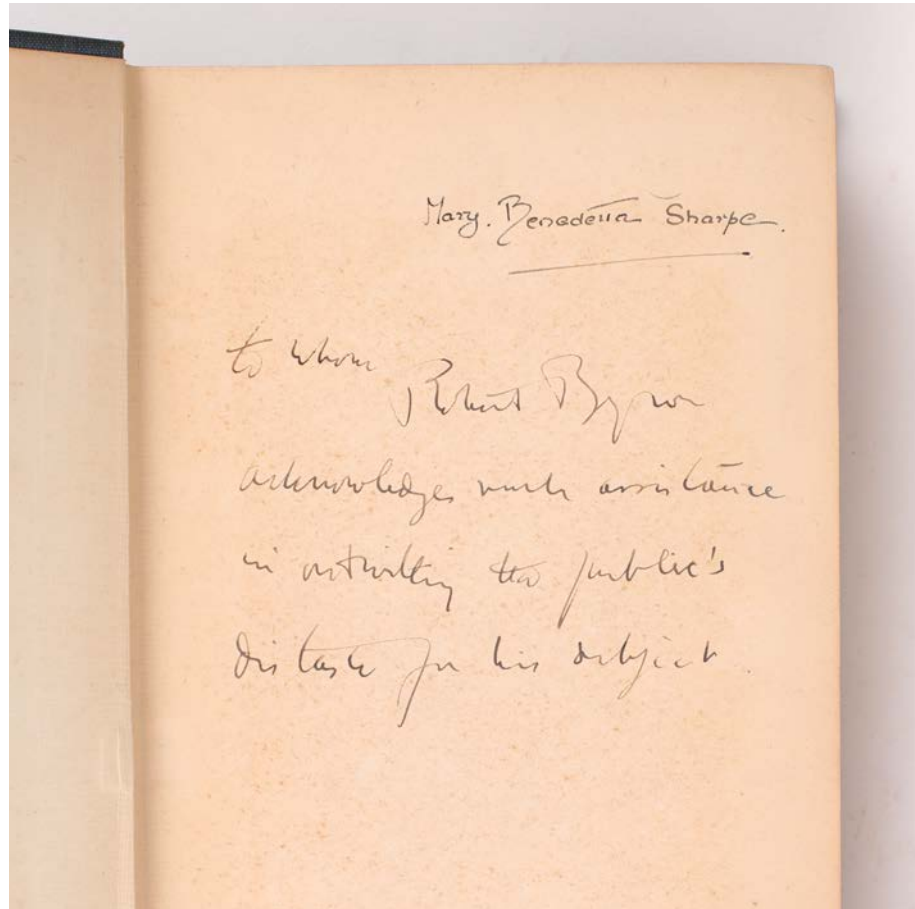 Mary. Benedetta Sharpe.
to whom
Robert Byron
acknowledges much assistance
in outwitting the public's
distaste for his subject